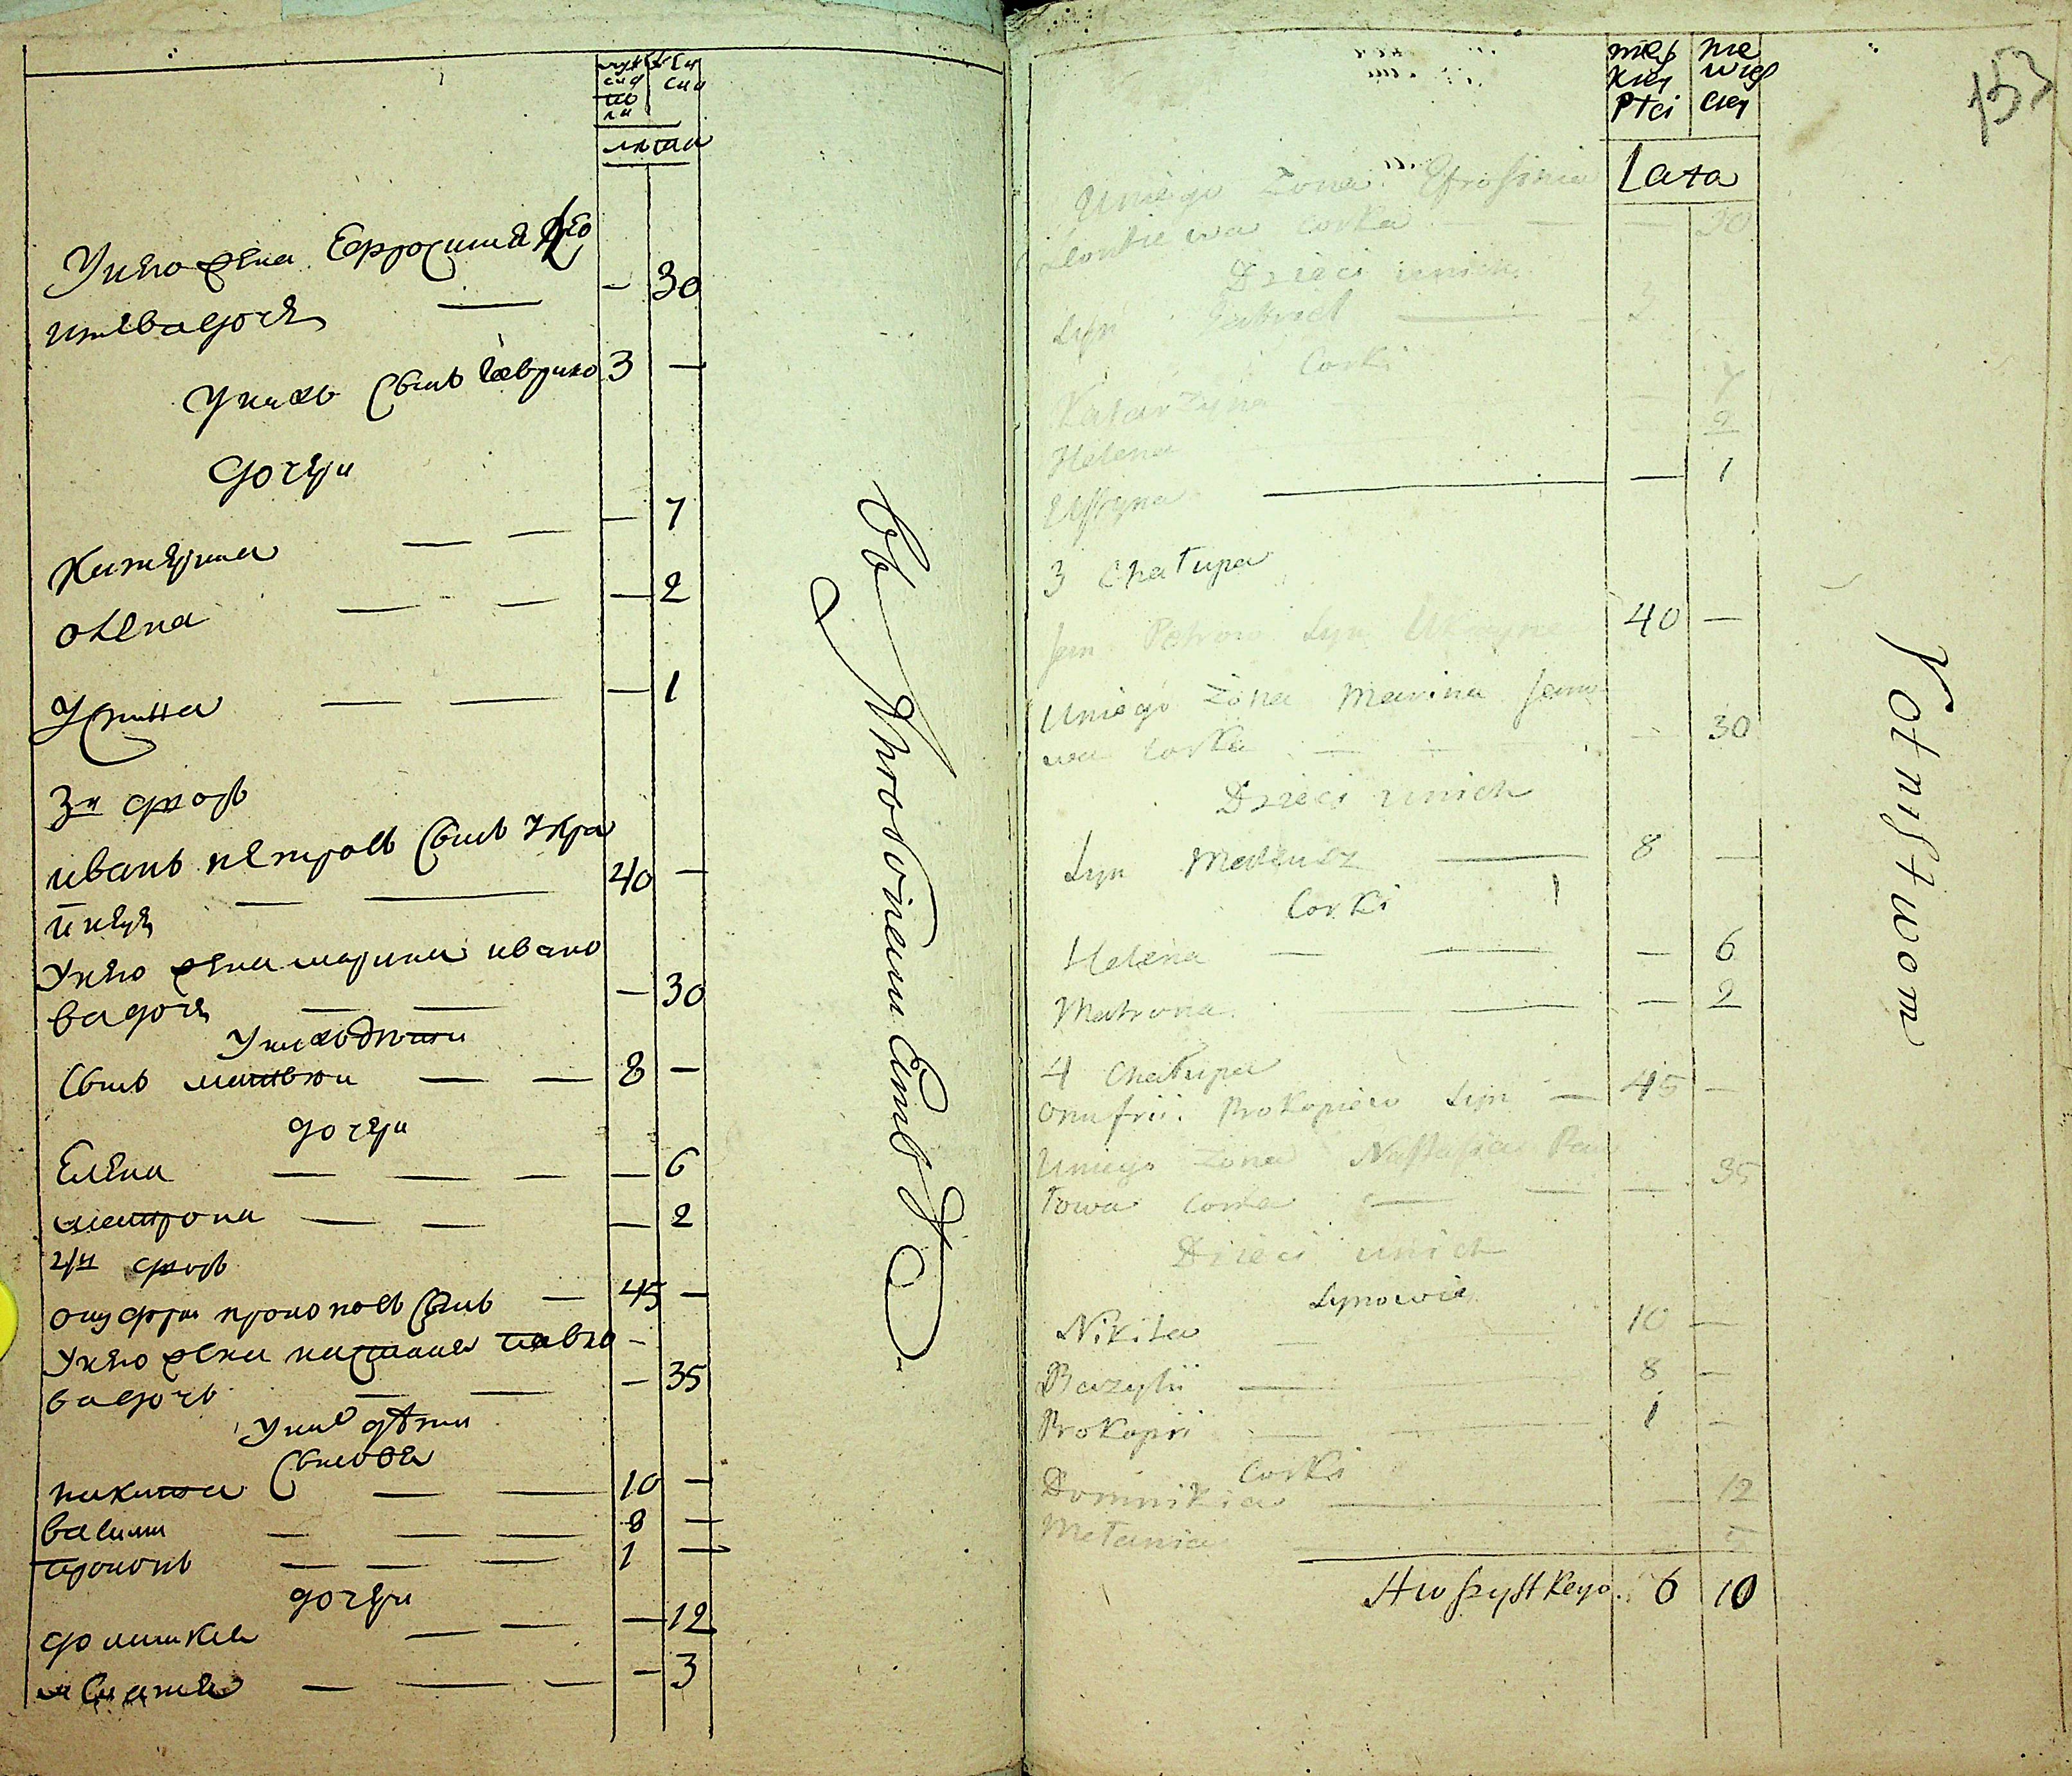 лѣта
Унего жена Ефросиния Лео
нтева дочь — — 30
Унихъ Сынъ Гаврило 3 —
дочери
Катерина — — — 7
олена — — — 2
Устина — — — 1
3й дворъ
иванъ петровъ Сынъ Укра
инецъ — — 40 —
Унего жена марина ивано
ва дочь — — — 30
Унихъ дѣти
Сынъ матвѣи — — 8 —
дочери
Елена — — — — 6
матрона — — — 2
4й дворъ
онуфри прокопевъ Сынъ — 45 —
Унего жена настася павло —
ва дочь — — — 35
Унихъ дѣти
Сыновья
никита — — 10 —
васили — — — 8 —
прокопъ — — — 1 —
дочери
домникия — — — 12
— — — — 3
męs nie
kiey wies
Płci ciey
153
Lata
Uniego Żona Efrosinia
Leontiewa Corka — — 30
Dzieci unich
Syn Gabriel — 3
Corki
Katarzyna 7
Helena 2
Ustyna — — 1
3 Chałupa
Jan Petrow Syn Ukrayne 40 —
Uniego Żona Marina Jano
wa Corka — — — 30
Dzieci unich
Syn Mateusz — 8 —
Corki
Helena — — — 6
Matrona — — — 2
4 Chałupa
Onufrii Prokopiew Syn — 45 —
Uniego Żona Nastasia Paw
łowa Corka — — — 35
Dzieci unich
Synowie
Nikita — 10 —
Bazylii — 8 —
Prokopii — 1 —
Corki
Domnikia — — 12
Mełania —
Awszystkego. 6 10
Potnistwom